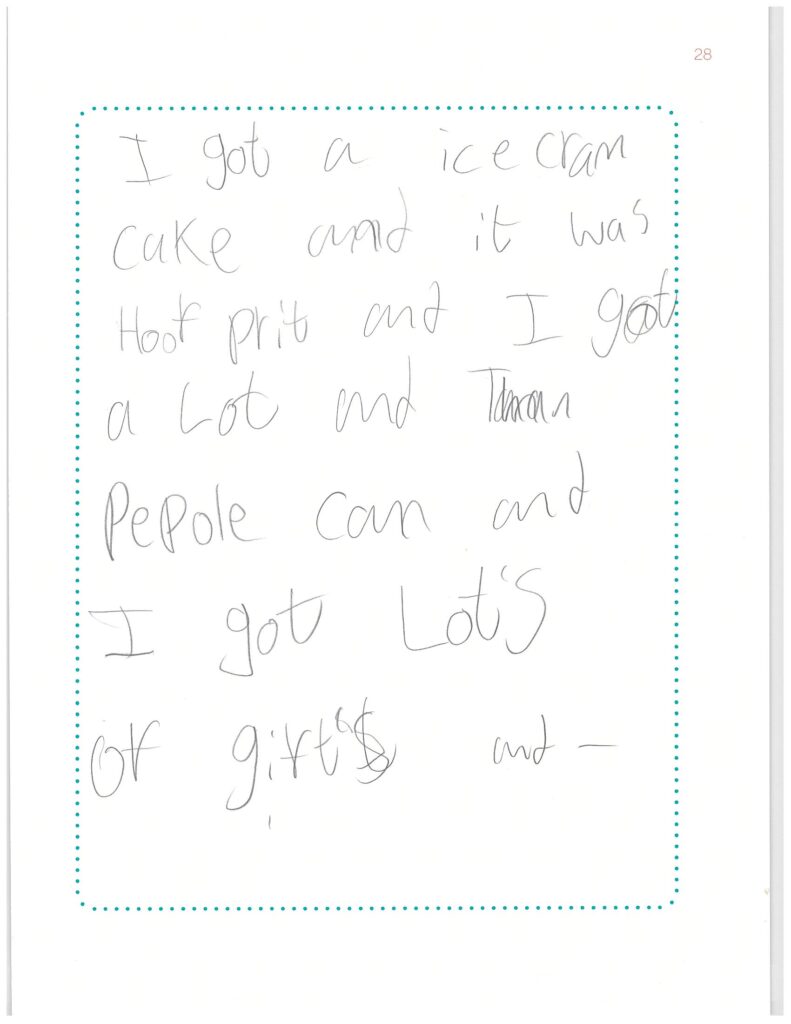 28
I got a ice cram
cake and it was
Hoof prit and I got
a Lot and
Pepole can and
I got Lot's
of gift's and –